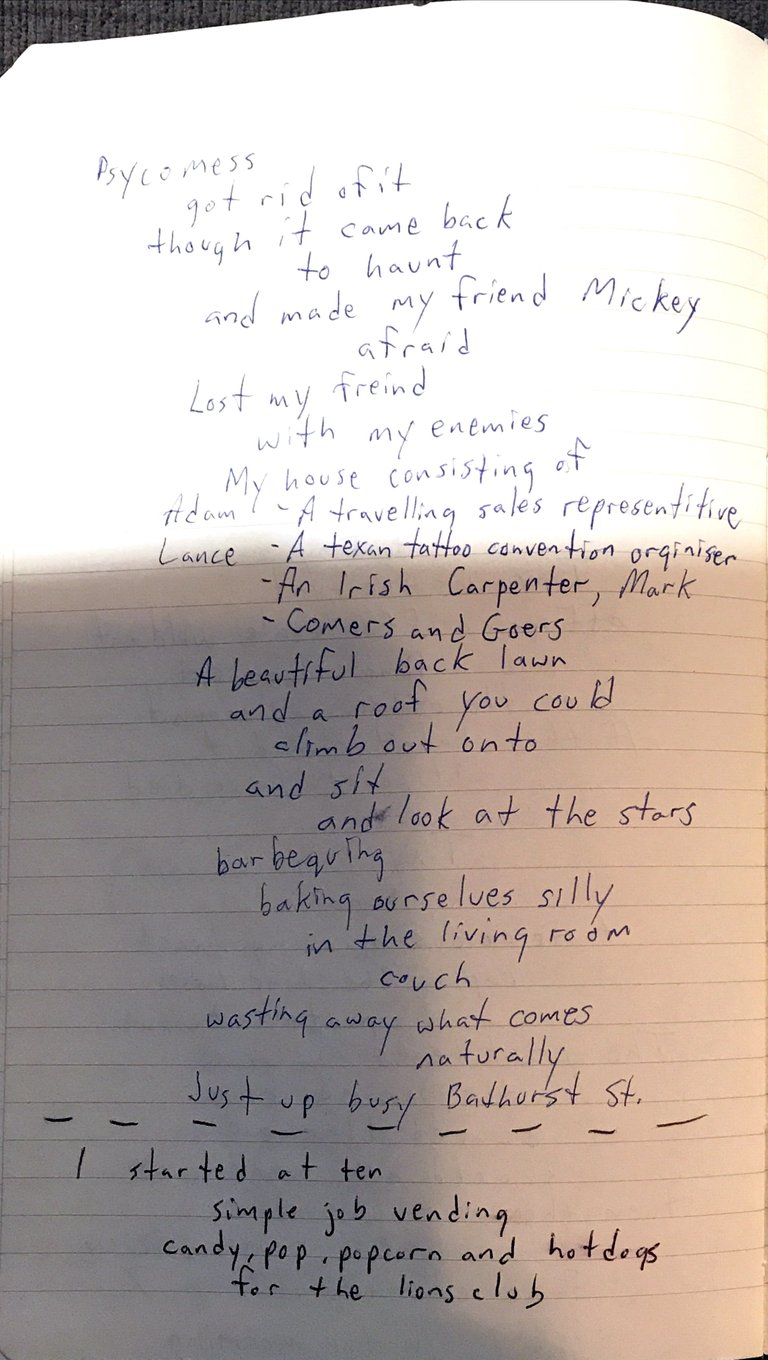 Psycomess
got rid of it
though it came back
to haunt
and made my friend Mickey
afraid
Lost my freind
with my enemies
My house consisting of
Adam - A travelling sales representitive
Lance - A texan tattoo convention orginiser
- An Irish Carpenter, Mark
- Comers and Goers
A beautiful back lawn
and a roof you could
climb out onto
and sit
and look at the stars
barbequing
baking ourselves silly
in the living room
couch
wasting away what comes
naturally
Just up busy Bathurst St.
I started at ten
simple job vending
candy, pop, popcorn and hotdogs
for the lions club